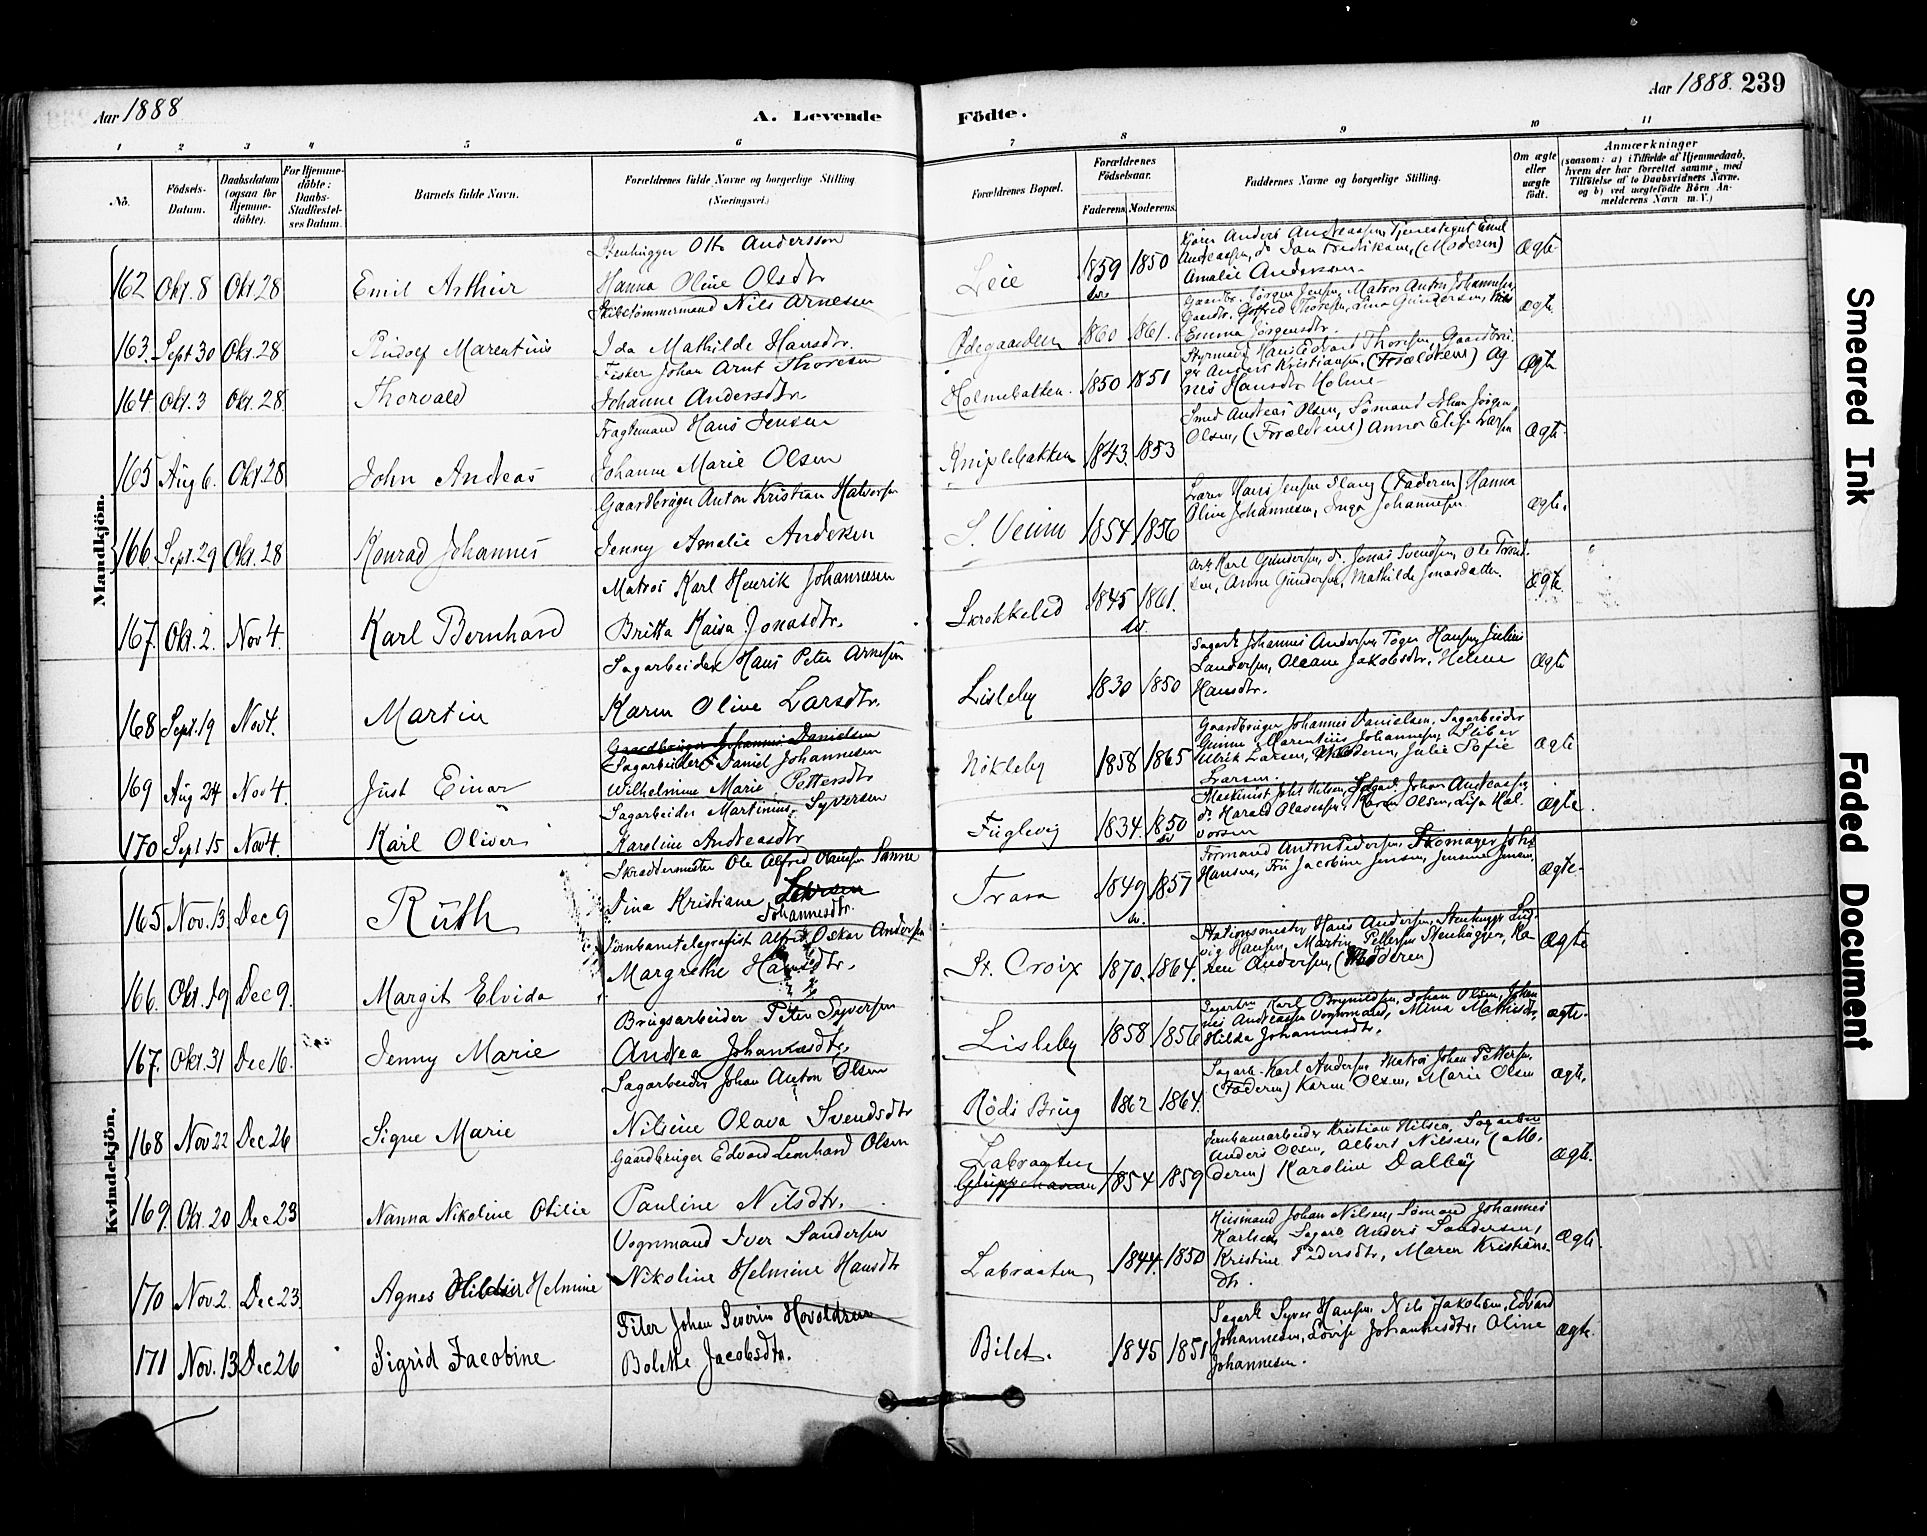 Aar 1888
A. Levende
Födte.
Aar 1888. 239
1 2 3 4 5 6 7 8 9 10 11
No.
Födsels-Datum.
Daabsdatum (ogsaa for Hjemme-döbte).
For Hjemme-döbte: Daabs-Stadfæstel-ses Datum.
Barnets fulde Navn.
Forældrenes fulde Navne og borgerlige Stilling (Næringsvei.)
Forældrenes Bopæl.
Forældrenes Födselsaar.
Faderens. Moderens.
Faddernes Navne og borgerlige Stilling.
Om ægte eller uægte født.
Anmærkninger
(saasom: a) i Tilfælde af Hjemmedaab,
hvem der har forrettet samme, med
Tilföielse af to Daabsvidners Navne,
og b) ved uægtefödte Börn An-
melderens Navn m. V.)
Mandkjön.
Stenhugger Otto Andersson
162 Okt. 8 Okt 28 Emil Arthur Hanna Oline Olsdtr Leie 1859 1850 Ægte
Amalie Andersen
Skibstömmermand Nils Arnesen
163. Sept 30 Okt. 28 Rudolf Marentius Ida Mathilde Hansdtr. Ödegaarden 1860 1861. Ægte.
Emma Jörgensdtr.
Fisker Johan Arnt Thoresen
164 Okt. 3 Okt. 28. Thorvald Johanne Andersdtr Holmebakken. 1850 1851 Ægte
Styrmand Hans Edvard Thoresen,
Anders Kristiansen, (Forældrene) Ag
nes Hansdtr Holme
Fragtemand Hans Jensen
165 Aug 6. Okt. 28 John Andreas Johanne Marie Olsen Kniplebakken 1843. 1853 Ægte
Smed Andreas Olsen, Sömand Johan Jörgen
Olsen, (Forældrene) Anna Elise Larsen
Gaardbruger Anton Kristian Halvorsen
166 Sept. 29 Okt. 28 Konrad Johannes Jenny Amalie Andersen S. Veum 1854 1856 Ægte.
Lærer Hans Jensen (Faderen) Hanna
Oline Johannesen, Inga Johannesen
Matros Karl Henrik Johannesen
167. Okt. 2. Nov 4. Karl Bernhard Britta Kaisa Jonasdtr. Skrokkelid 1845 1861. Ægte
Arb. Karl Gundersen, d. Jonas Svendsen, Ole
Anne Gundersen, Mathilde Jonasdatter.
Sagarbeider Hans Peter Arnesen
168 Sept. 19 Nov 4. Martin Karen Oline Larsdtr. Lisleby 1830 1850 Ægte
Sagarb. Johannes Andersen, Hansen, Julius
Sandersen, Oleane Jakobsdtr. Helene
Hansdtr.
Gaardbruger Johannes Danielsen
Sagarbeider Daniel Johannesen
169 Aug 24 Nov 4. Just Einar Wilhelmine Marie Pettersdtr Nökleby 1858 1865 Ægte
Gaardbruger Johannes Danielsen, Sagarbeider
Marentius Johannesen,
Ulrik Larsen, Moderen, Julie Sofie
Larsen.
Sagarbeider Martinius Syversen
170 Sept 15 Nov 4. Karl Oliver Karoline Andreasdtr Fuglevig 1834. 1850 Ægte
Maskinist Johs Nilsen, Sagarb. Johan Andreasen,
d. Harald Olavessen, Karen Olsen, Lisa Hal
vorsen
Kvindekjön.
Skræddermester Ole Alfred Sanne
165 Nov. 13. Dec 9 Ruth Dina Kristiane Larsen Johannesdtr. Trara 1849 1857 Ægte
Formand Anton Pedersen, Skomager Johs
Hansen, Fru Jacobine Jensen, Jensine Jensen,
Jernbanetelegrafist Alfred Oskar Andersen
166. Okt. 19 Dec 9. Margit Elvida Margrethe Hansdtr. St. Croix 1870. 1864. Ægte
Stationsmester Hans Andersen, Stenhugger Lud
vig Hansen, Martin Pettersen Stenhugger, Ka
ren Andersen, (Moderen)
Brugsarbeider Peter Syversen
167. Okt. 31 Dec 16. Jenny Marie Andrea Johannesdtr. Lisleby 1858 1856 Ægte.
Sagarbr. Karl Brynildsen, Johan Olsen, Johan
nes Andreasen Vognmand, Mina Mathisdtr,
Hilda Johannesdtr.
Sagarbeider Johan Anton Olsen
168 Nov 22 Dec 26 Signe Marie Nilsine Olava Svendsdtr Röds Brug 1862 1864. Ægte.
Sagarb. Karl Andersen, Matros Johan Pettersen,
(Faderen) Karen Olsen, Marie Olsen
Gaardbruger Edvard Leonhard Olsen
169. Okt. 20 Dec 23 Nanna Nikoline Otilie Pauline Nilsdtr. Labraaten 1854 1859 Ægte.
Jernbanearbeider Kristian Nilsen, Sagarbei
Anders Olsen, Albert Nilsen, (Mo
deren) Karoline Dalby
Vognmand Iver Sandersen
170 Nov. 2. Dec 23. Agnes Helmine Nikoline Helmine Hansdtr Labraaten 1844. 1850 Ægte.
Husmand Johan Nilsen, Sömand Johannes
Karlsen, Sagarb Anders Sandersen,
Kristine Pedersdtr, Maren Kristians-
dtr.
Filer Johan Severin Hovoldsen
171 Nov. 13 Dec 26 Sigrid Jacobine Bolette Jacobsdtr. Bilet. 1845 1851 Ægte.
Sagarb Syver Hansen, Nils Jakobsen, Edvard
Johannesen, Lovise Johannesdtr, Oline
Johannesen.
Smeared Ink
Faded Document